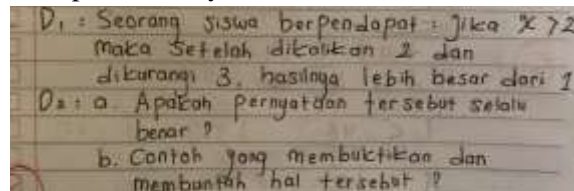 D₁ : Seorang siswa berpendapat : Jika x > 2
maka setelah dikalikan 2 dan
dikurangi 3, hasilnya lebih besar dari 1
D₂ : a. Apakah pernyataan tersebut selalu
benar ?
b. Contoh yang membuktikan dan
membantah hal tersebut ?